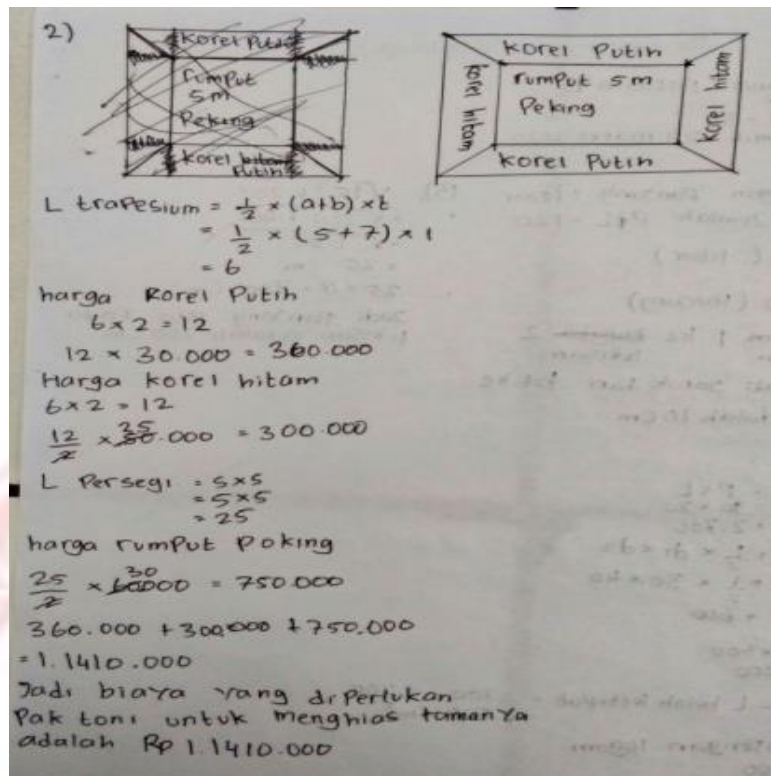 2)
korel Putih
rumput
5m
Peking
korel hitam
Putih
korel Putih
korel hitam
rumput 5m
Peking
korel hitam
korel Putih
L trapesium = 1/2 × (a+b) × t
= 1/2 × (5+7) × 1
= 6
harga Korel Putih
6 × 2 = 12
12 × 30.000 = 360.000
Harga korel hitam
6 × 2 = 12
12/2 × 25.000 = 300.000
L Persegi = 5×5
= 5×5
= 25
harga rumput Poking
25/2 × 60000 30 = 750.000
360.000 + 300.000 + 750.000
= 1.1410.000
Jadi biaya yang diperlukan
Pak toni untuk menghias tamanya
adalah Rp 1.1410.000